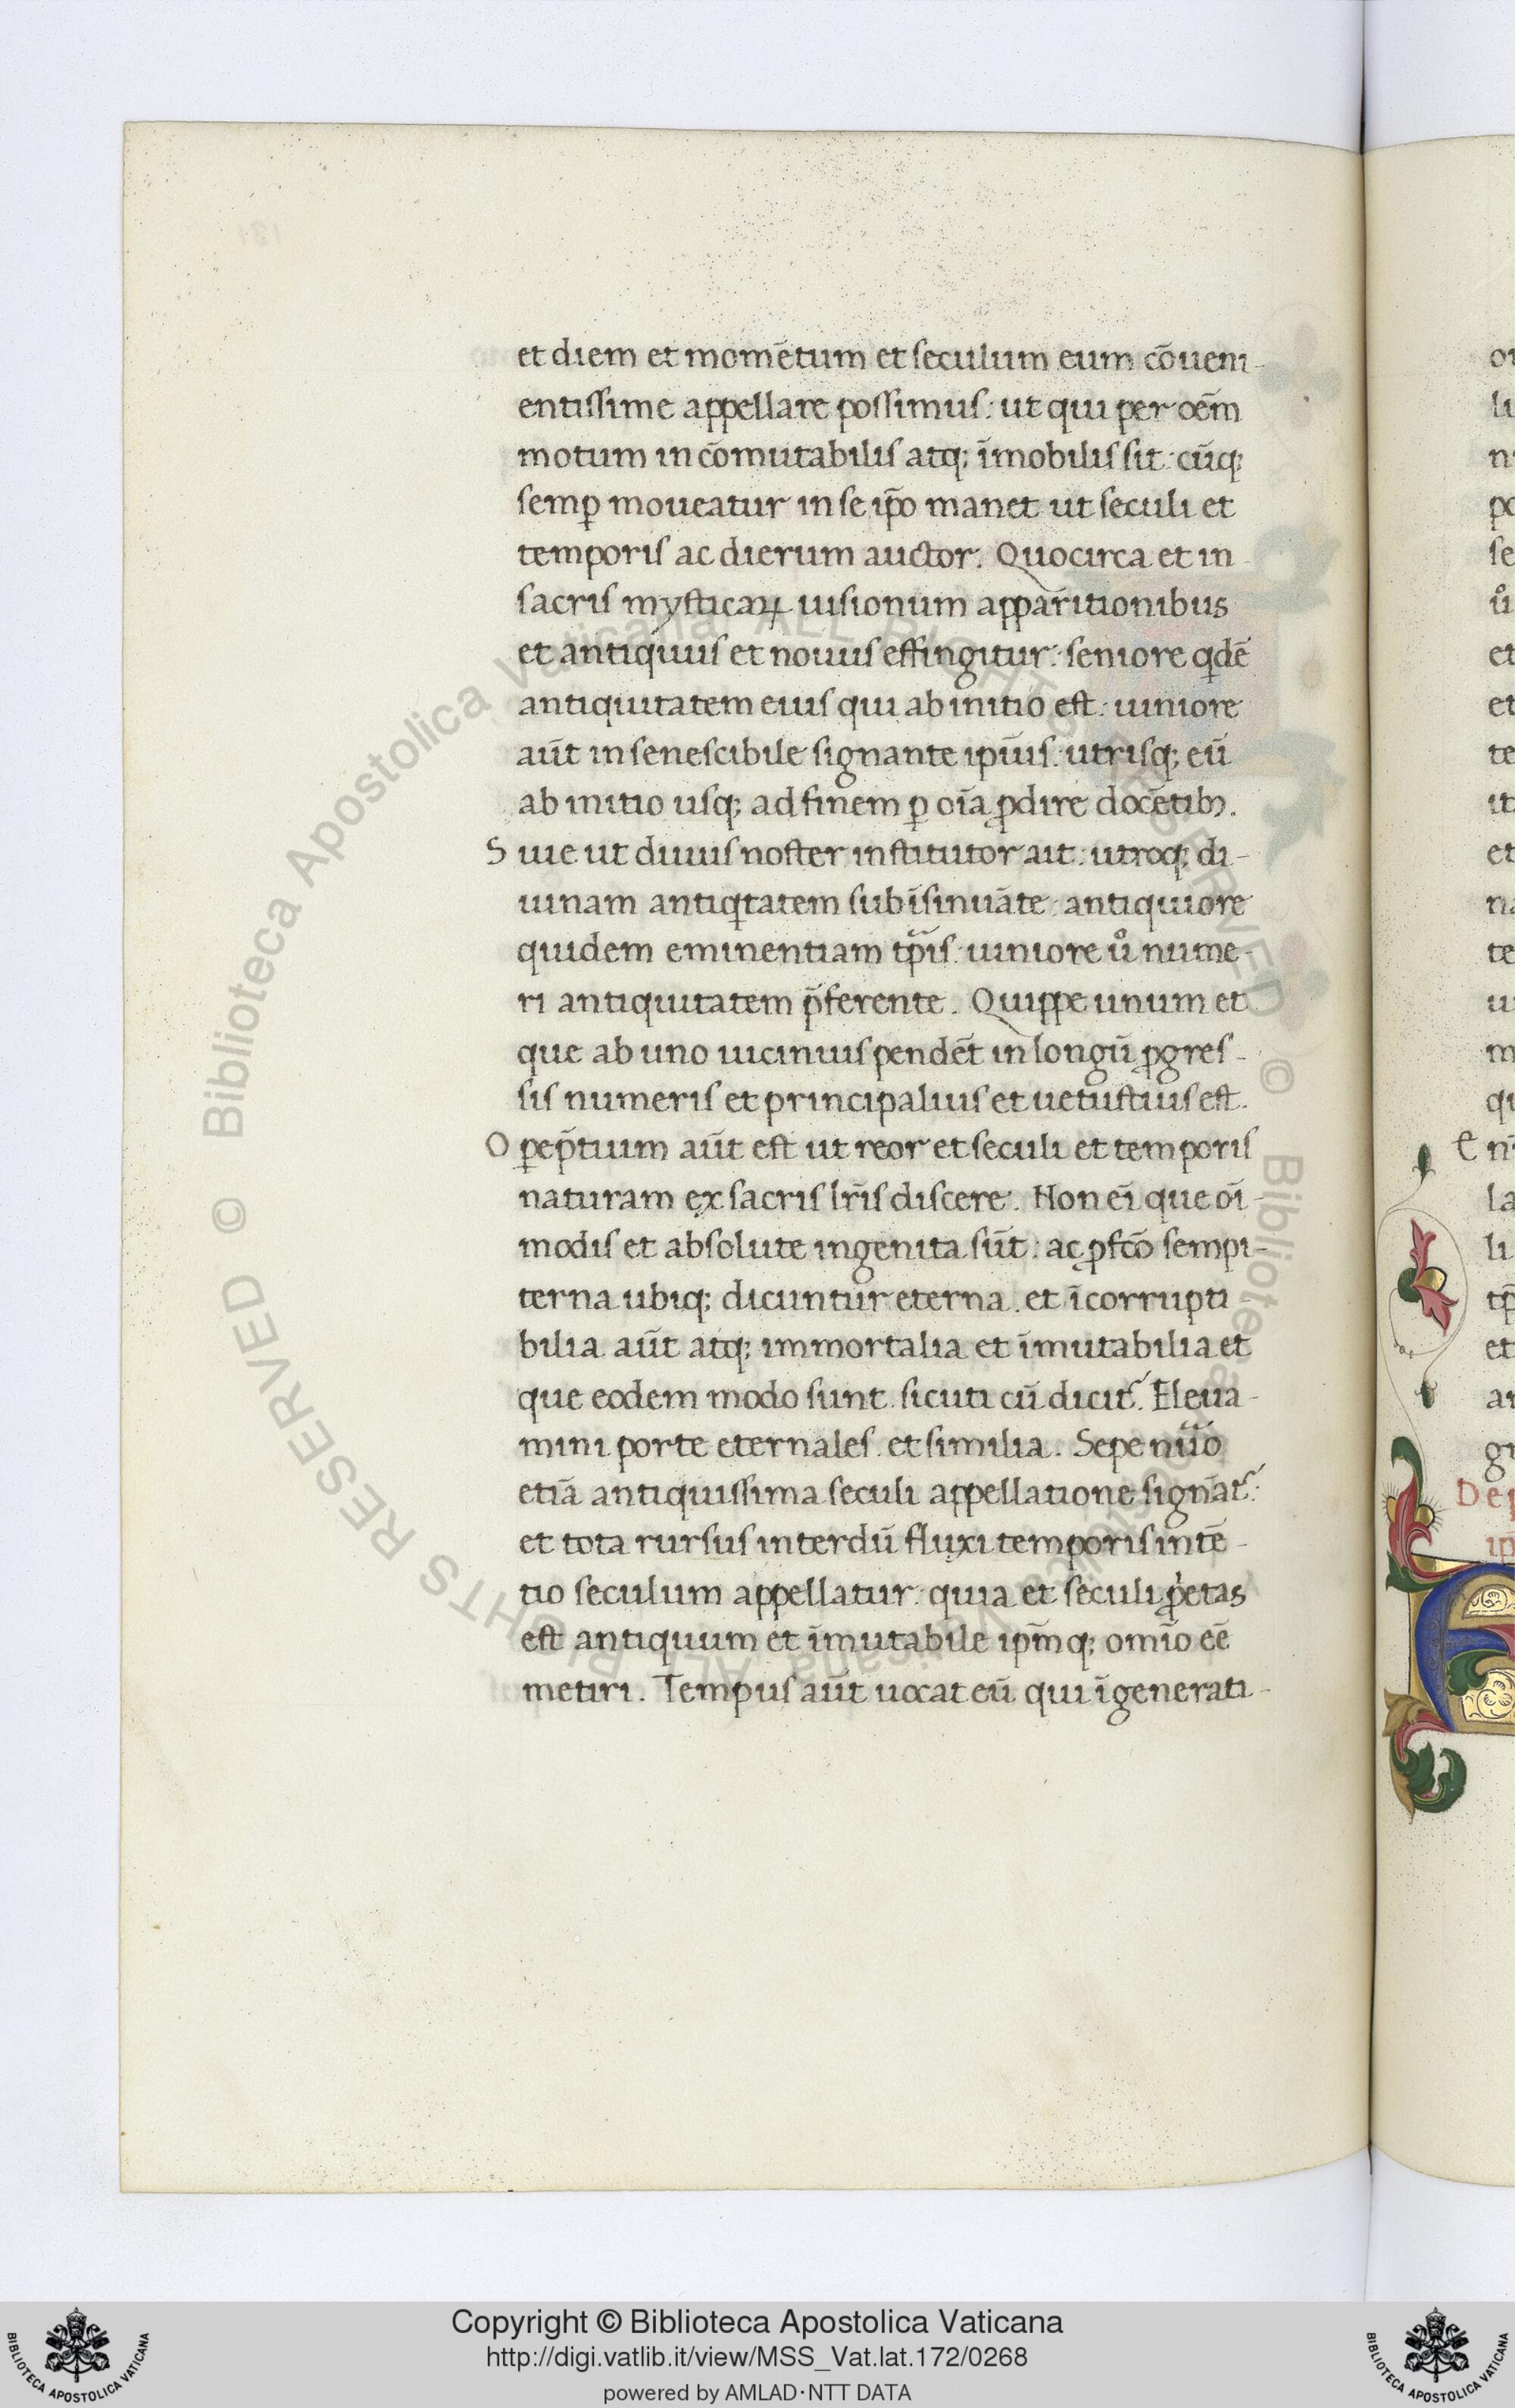 et diem et momētum et seculum eum cōueni-
entissime appellare possimus: ut qui per oēm
motum incōmutabilis atq; īmobilis sit: cūq;
semꝑ moueatur in se ip̄o manet ut seculi et
temporis ac dierum auctor. Quocirca et in
sacris mysticaꝝ uisionum apparitionibus
et antiquus et nouus effingitur: seniore qdē
antiquitatem eius qui ab initio est: iuniore
aūt insenescibile signante ipīus: utrisq; eū
ab initio usq; ad finem ꝑ oīa ꝓdire docētibꝫ.
Siue ut diuus noster institutor ait: utroq; di-
uinam antiqtatem subīsinuāte: antiquiore
quidem eminentiam tp̄is: iuniore uº nume-
ri antiquitatem p̄ferente. Quippe unum et
que ab uno uicinius pendēt in longū ꝓgres-
sis numeris et principalius et uetustius est.
Oꝑep̄tium aūt est ut reor et seculi et temporis
naturam ex sacris lr̄is discere. Non eī que oī-
modis et absolute ingenita sūt: ac ꝓfcō sempi-
terna ubiq; dicuntur eterna. et īcorrupti
bilia aūt atq; immortalia et īmutabilia et
que eodem modo sunt. sicuti cū dicit᷑. Eleua-
mini porte eternales. et similia. Sepe nūo
etiā antiquissima seculi appellatione signāt᷑:
et tota rursus interdū fluxi temporis intē-
tio seculum appellatur: quia et seculi ꝓ̍etas
est antiquum et īmutabile ip̄mq; omīo eē
metiri. Tempus aūt uocat eū qui īgenerati-
Copyright © Biblioteca Apostolica Vaticana
http://digi.vatlib.it/view/MSS_Vat.lat.172/0268
powered by AMLAD·NTT DATA